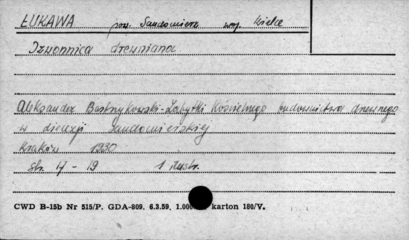 ŁUKAWA pow. Sandomierz woj. Kielce
Dzwonnica drewniana
Aleksander Bastrzykowski - Zabytki Kościelnego budownictwa drewnego
w diecezji sandomierskiej
Kraków 1930
Str. 17 - 19 1 ilustr.
CWD B-15b Nr 515/P. GDA-809. 6.3.59. 1.000 karton 180/V.